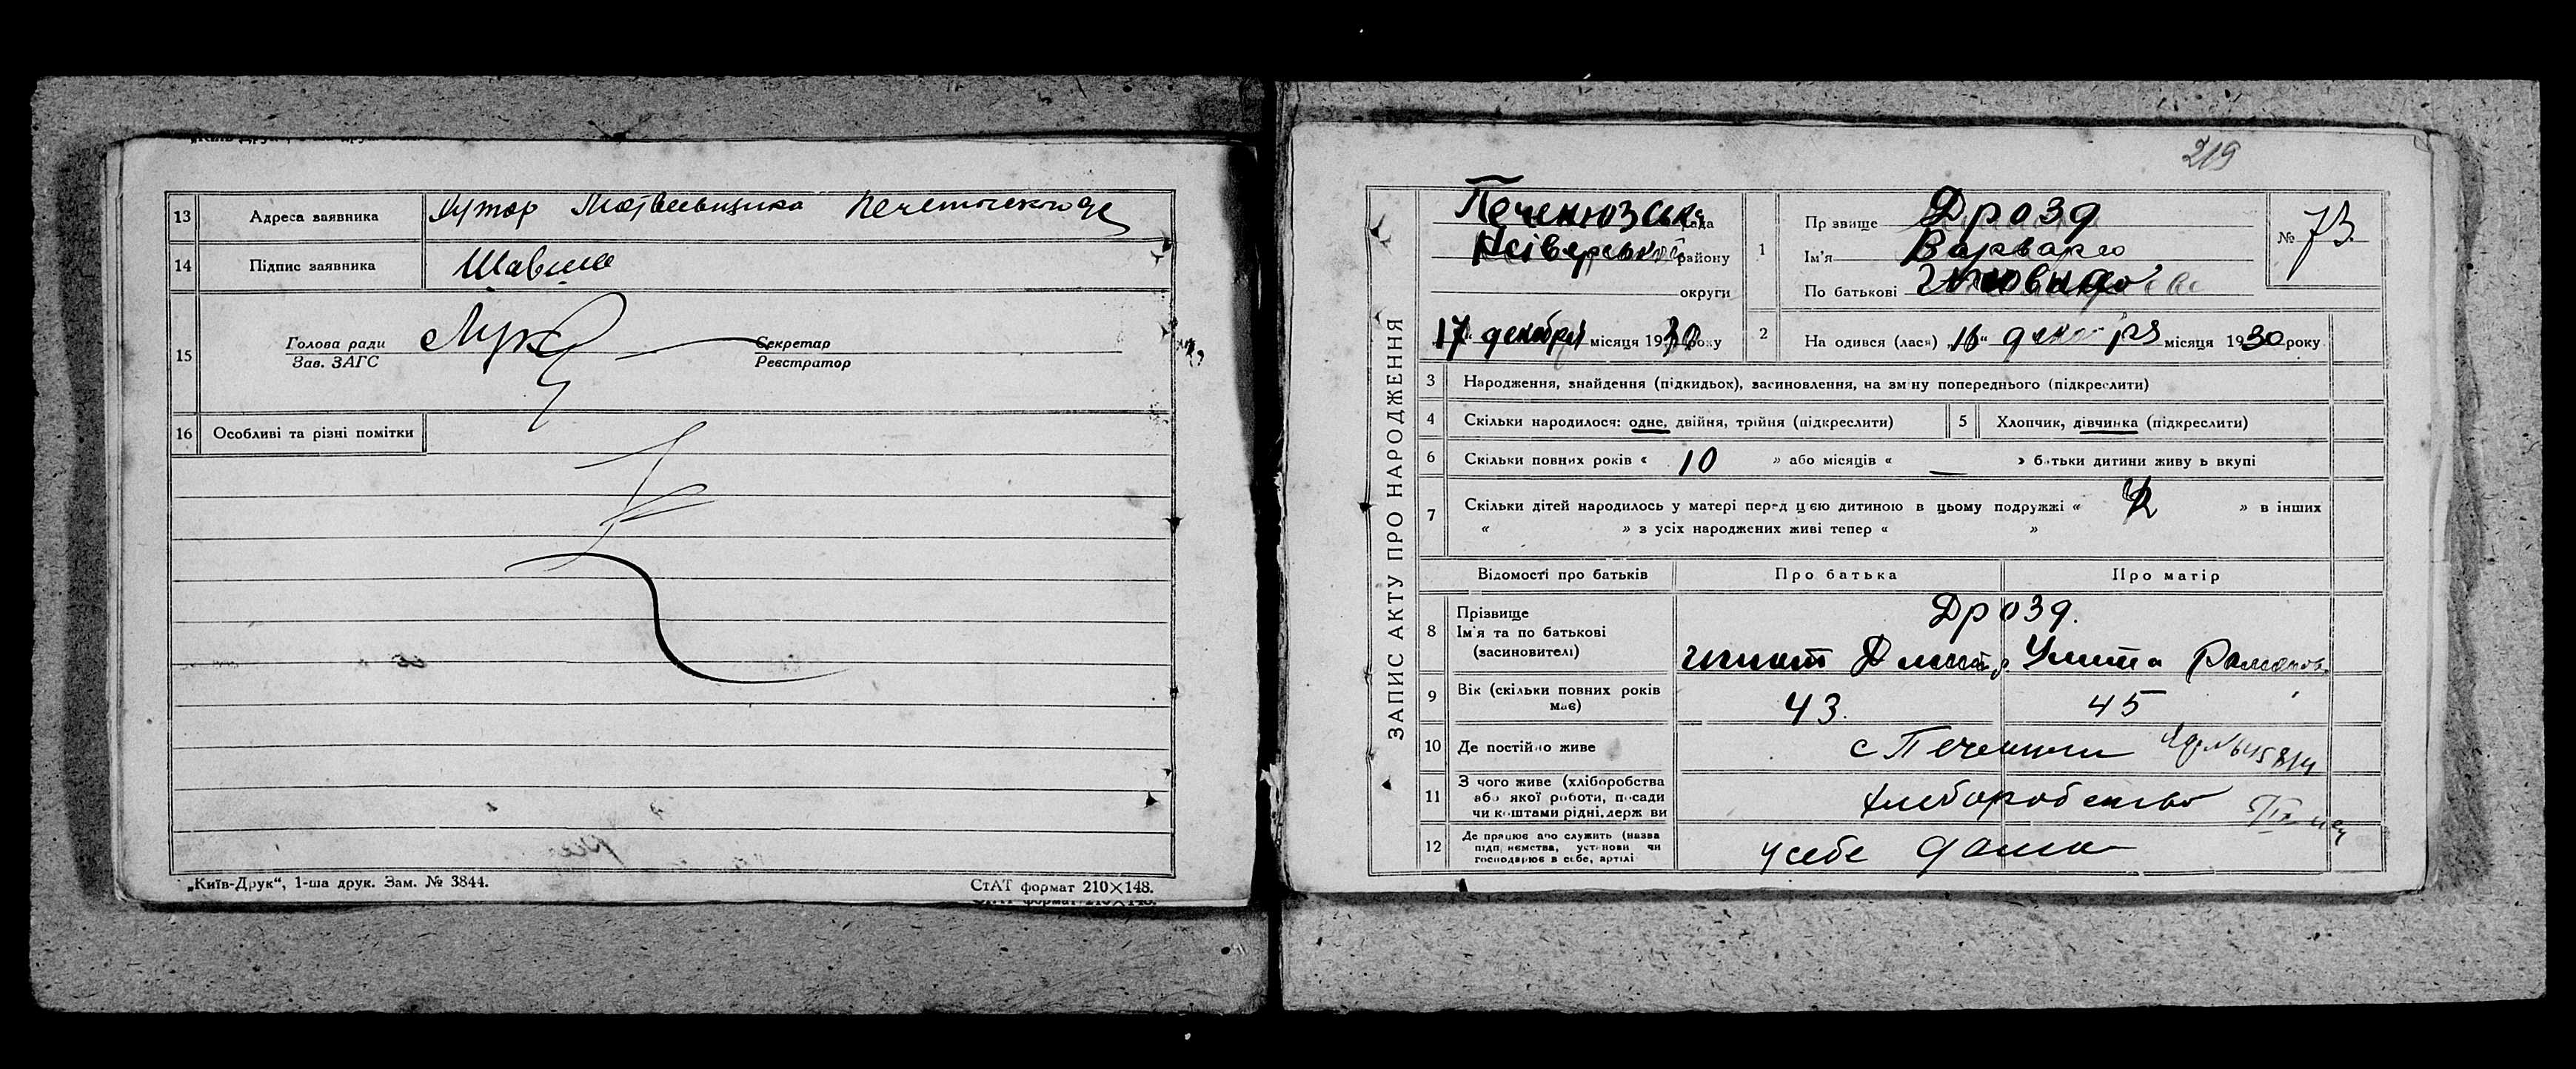 13 Адреса заявника Хутор
14 Підпис заявника
15 Голова ради Секретар
Зав. ЗАГС Реєстратор
16 Особливі та різні помітки
„Київ-Друк“, 1-ша друк. Зам. № 3844. СтАТ формат 210×148.
219
ЗАПИС АКТУ ПРО НАРОДЖЕННЯ
Печенюзська рада
району
округи
17 декабря місяця 1930 року
1 Прізвище Дрозд
Ім'я Варвара
По батькові
№ 73
2 Народився (лася) „16“ місяця 1930 року
3 Народження, знайдення (підкидьок), засиновлення, на зміну попереднього (підкреслити)
4 Скільки народилося: одне, двійня, трійня (підкреслити) 5 Хлопчик, дівчинка (підкреслити)
6 Скільки повних років « 10 » або місяців « — » батьки дитини живуть вкупі
7 Скільки дітей народилось у матері перед цією дитиною в цьому подружжі « » в інших
« » з усіх народжених живі тепер « »
Відомості про батьків Про батька Про матір
8 Прізвище Дрозд.
Ім'я та по батькові
(засновителі) Улита Романов.
9 Вік (скільки повних років має) 43. 45
10 Де постійно живе с Печенюги
11 З чого живе (хліборобства
або якої роботи, посади
чи коштами рідні, держ ви
12 Де працює або служить (назва
підприємства, установи чи
господарює в себе, артілі
у себе дома